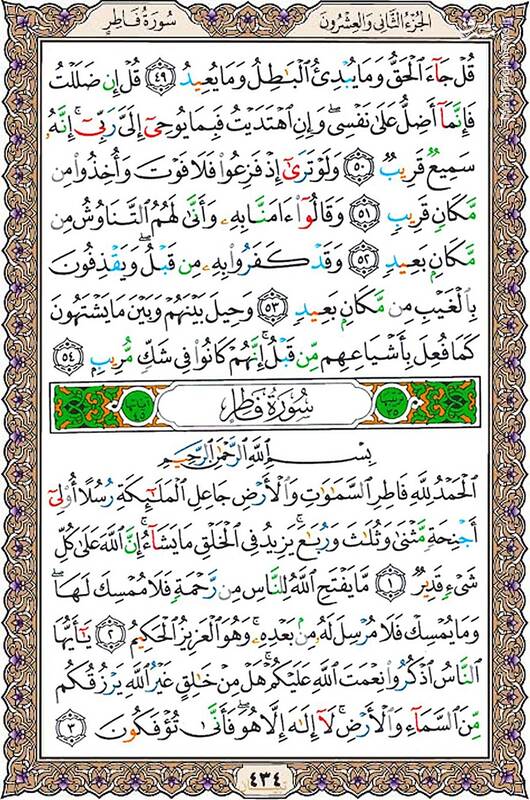 الجزء الثانی والعشرون
سورة فاطر
قُلْ جَآءَ الْحَقُّ وَمَا يُبْدِئُ الْبَاطِلُ وَمَا يُعِيدُ ٤٩ قُلْ إِن ضَلَلْتُ
فَإِنَّمَآ أَضِلُّ عَلَىٰ نَفْسِى وَإِنِ اهْتَدَيْتُ فَبِمَا يُوحِىٓ إِلَىَّ رَبِّىٓ إِنَّهُۥ
سَمِيعٌ قَرِيبٌ ٥٠ وَلَوْ تَرَىٰٓ إِذْ فَزِعُوا۟ فَلَا فَوْتَ وَأُخِذُوا۟ مِن
مَّكَانٍ قَرِيبٍ ٥١ وَقَالُوٓا۟ ءَامَنَّا بِهِۦ وَأَنَّىٰ لَهُمُ التَّنَاوُشُ مِن
مَّكَانٍۭ بَعِيدٍ ٥٢ وَقَدْ كَفَرُوا۟ بِهِۦ مِن قَبْلُ وَيَقْذِفُونَ
بِالْغَيْبِ مِن مَّكَانٍۭ بَعِيدٍ ٥٣ وَحِيلَ بَيْنَهُمْ وَبَيْنَ مَا يَشْتَهُونَ
كَمَا فُعِلَ بِأَشْيَاعِهِم مِّن قَبْلُ إِنَّهُمْ كَانُوا۟ فِى شَكٍّ مُّرِيبٍ ٥٤
سُورَةُ فَاطِرٍ
بِسْمِ اللَّهِ الرَّحْمَٰنِ الرَّحِيمِ
الْحَمْدُ لِلَّهِ فَاطِرِ السَّمَٰوَٰتِ وَالْأَرْضِ جَاعِلِ الْمَلَٰٓئِكَةِ رُسُلًا أُو۟لِىٓ
أَجْنِحَةٍ مَّثْنَىٰ وَثُلَٰثَ وَرُبَٰعَ يَزِيدُ فِى الْخَلْقِ مَا يَشَآءُ إِنَّ اللَّهَ عَلَىٰ كُلِّ
شَىْءٍ قَدِيرٌ ١ مَّا يَفْتَحِ اللَّهُ لِلنَّاسِ مِن رَّحْمَةٍ فَلَا مُمْسِكَ لَهَا
وَمَا يُمْسِكْ فَلَا مُرْسِلَ لَهُۥ مِنۢ بَعْدِهِۦ وَهُوَ الْعَزِيزُ الْحَكِيمُ ٢ يَٰٓأَيُّهَا
النَّاسُ اذْكُرُوا۟ نِعْمَتَ اللَّهِ عَلَيْكُمْ هَلْ مِنْ خَٰلِقٍ غَيْرُ اللَّهِ يَرْزُقُكُم
مِّنَ السَّمَآءِ وَالْأَرْضِ لَآ إِلَٰهَ إِلَّا هُوَ فَأَنَّىٰ تُؤْفَكُونَ ٣
٤٣٤